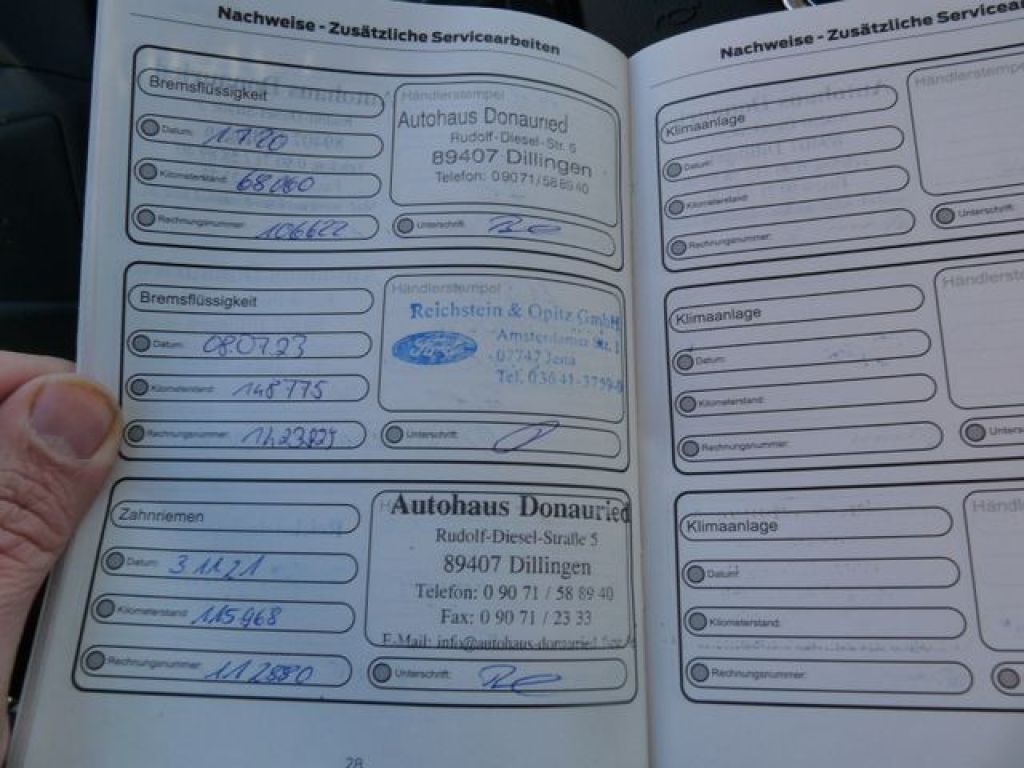 Nachweise - Zusätzliche Servicearbeiten
Bremsflüssigkeit
Datum: 1.7.20
Kilometerstand: 68060
Rechnungsnummer: 106622
Händlerstempel
Autohaus Donauried
Rudolf-Diesel-Str. 5
89407 Dillingen
Telefon: 09071/588940
Unterschrift:
Bremsflüssigkeit
Datum: 08.07.23
Kilometerstand: 148775
Rechnungsnummer:
Händlerstempel
Reichstein & Opitz GmbH
Ford
Amsterdamer Str. 1
07747 Jena
Tel. 03641-3759-0
Unterschrift:
Zahnriemen
Datum: 3.11.21
Kilometerstand: 115968
Rechnungsnummer: 112880
Autohaus Donauried
Rudolf-Diesel-Straße 5
89407 Dillingen
Telefon: 0 90 71 / 58 89 40
Fax: 0 90 71 / 23 33
E-Mail: info@autohaus-donauried
Unterschrift:
28
Nachweise - Zusätzliche Servicear
Klimaanlage
Datum:
Kilometerstand:
Rechnungsnummer:
Händlerstempel
Unterschrift:
Klimaanlage
Datum:
Kilometerstand:
Rechnungsnummer:
Händlerste
Unters
Klimaanlage
Datum:
Kilometerstand:
Rechnungsnummer:
Händl